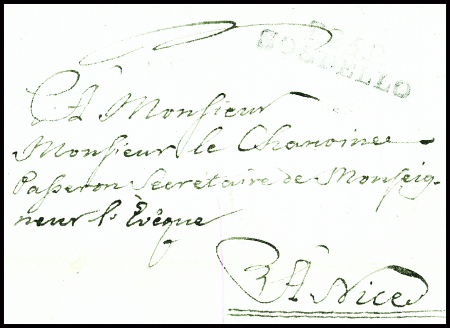 SOSPELLO
À Monsieur
Monsieur le Chanoine
Passeron Secretaire de Monseig-
neur l'Evèque
À Nice